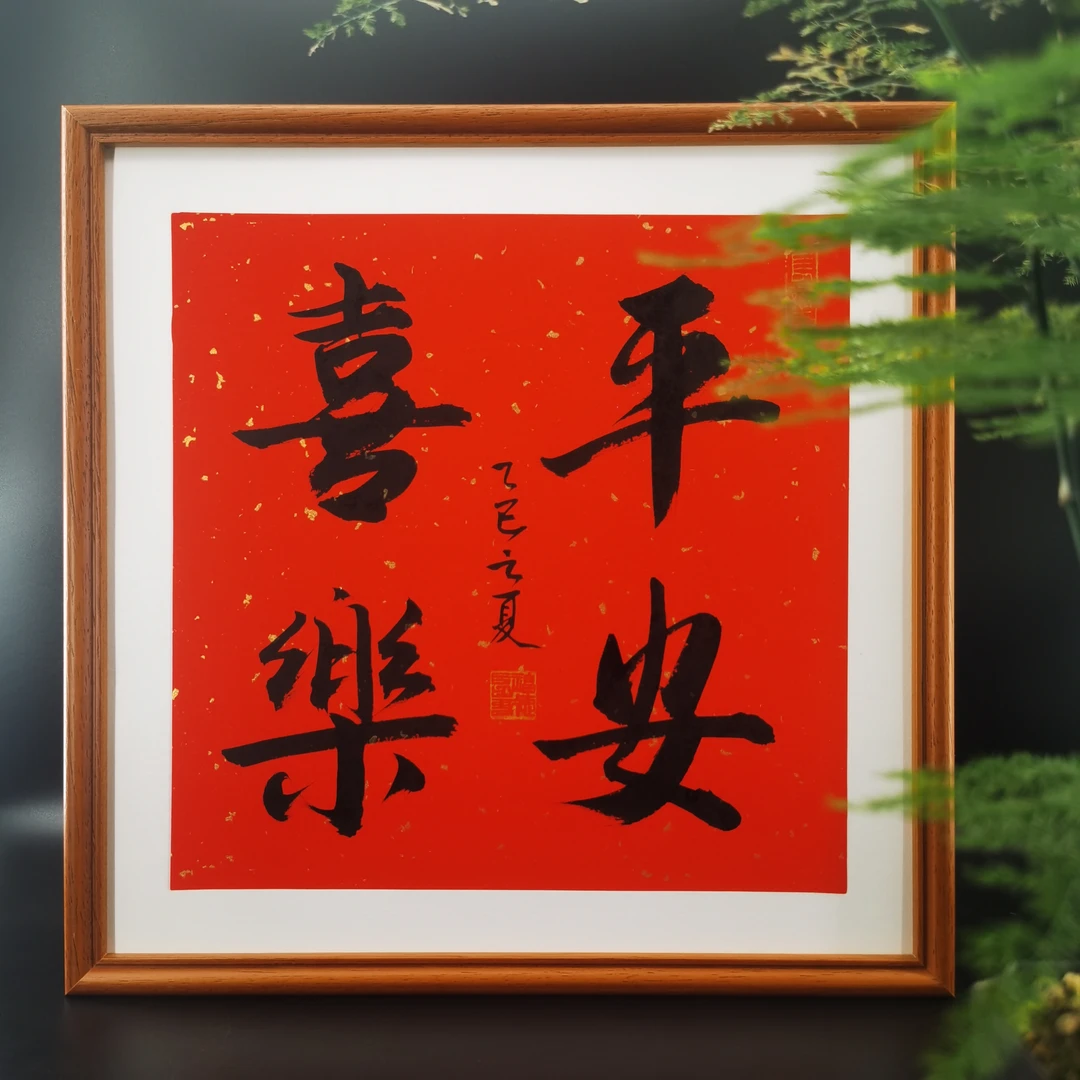 平安
喜樂
乙巳之夏